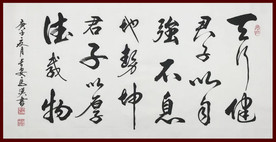 天行健
君子以自
強不息
地勢坤
君子以厚
德載物
庚子春月
書